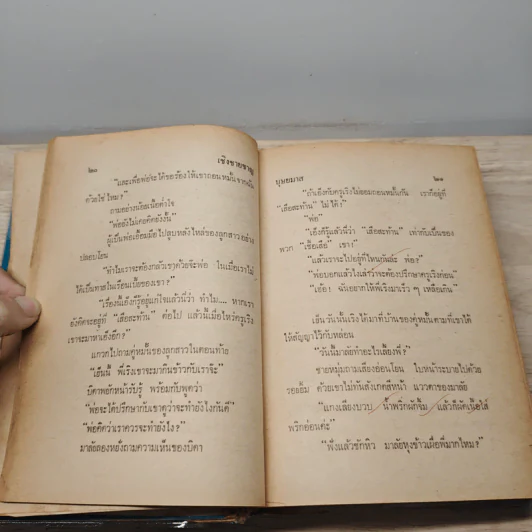 ๒๐
เชิงชายชาญ
"และเพื่อพ่อจะได้ขอร้องให้เขาถอนหมั้นจากฉัน
ด้วยใช่ไหม?"
ถามอย่างน้อมเนื้อต่ำใจ
"พ่อยังไม่เคยคิดยังงั้น"
ผู้เป็นพ่อเอื้อมมือไปลูบหลังไหล่ของลูกสาวอย่าง
ปลอบโยน
"ทำไมเราจะต้องกลัวเขาด้วยจ๊ะพ่อ ในเมื่อเราไม่
ได้เป็นทาสในเรือนเบี้ยของเขา?"
"เรื่องนี้เอ็งก็รู้อยู่แก่ใจแล้วนี่ว่า ทำไม... หากเรา
ยังคิดจะอยู่ที่ "เสือสะท้าน" ต่อไป แล้วนี่เมื่อไหร่ครูเริง
เขาจะมาหาเอ็งอีก?"
แกวกไปถามคู่หมั้นของลูกสาวในตอนท้าย
"เย็นนี้ พี่เริงเขาจะมากินข้าวกับเราจ้ะ"
บิดาพยักหน้ารับรู้ พร้อมกับพูดว่า
"พ่อจะได้ปรึกษากับเขาดูว่าจะทำยังไงกันดี"
"พ่อคิดว่าเราควรจะทำยังไง?"
มาลัยลองหยั่งถามความเห็นของบิดา
บุษยมาส
๒๑
"ถ้าเอ็งกับครูเริงไม่ยอมถอนหมั้นกัน เราก็อยู่ที่
"เสือสะท้าน" ไม่ได้!"
"พ่อ"
"เอ็งก็รู้แล้วนี่ว่า "เสือสะท้าน" เท่ากับเป็นของ
พวก "เชื้อเสือ" เขา!"
"แล้วเราจะไปอยู่ที่ไหนกันล่ะ พ่อ?"
"พ่อบอกแล้วไงเล่าว่าจะต้องปรึกษาครูเริงก่อน"
"เฮ้อ! ฉันอยากให้พี่เริงมาเร็ว ๆ เหลือเกิน"
เย็นวันนั้นเริงได้มาที่บ้านของคู่หมั้นตามที่เขาได้
ให้สัญญาไว้กับหล่อน
"วันนี้มาลัยทำอะไรเลี้ยงพี่?"
ชายหนุ่มถามเสียงอ่อนโยน ใบหน้าระบายไปด้วย
รอยยิ้ม ด้วยเขาไม่ทันสังเกตสีหน้า แววตาของมาลัย
"แกงเลียงบวบ น้ำพริกผักจิ้ม แล้วก็ผัดเนื้อใส่
พริกอ่อนค่ะ"
"ฟังแล้วชักหิว มาลัยหุงข้าวเผื่อพี่มากไหม?"